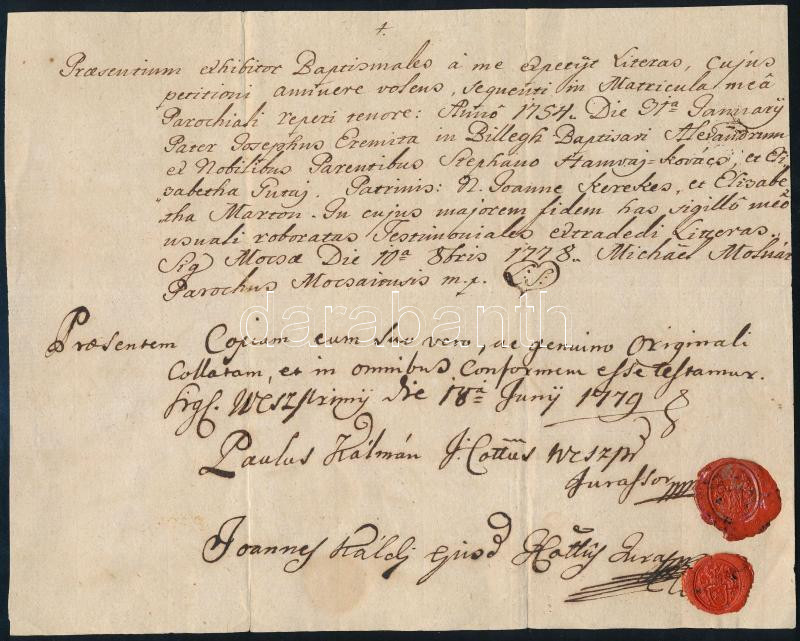 Præsentium exhibitor Baptismales à me expetijt Literas, Cujus
petitioni annuere volens, sequenti in Matricula meâ
Parochiali reperi tenore: Anno 1754. Die 31ª Januarij
Pater Josephus Eremita in Billegh Baptisavi Alexandrum
ex Nobilibus Parentibus Stephano Hamvaj-Kovács, et Eli-
sabetha Gutaj. Patrinis: N. Joanne Kerekes, et Elisabe-
tha Marton. In cujus majorem fidem has sigillô meô
usuali roboratas Testimoniales extradedi Litteras.
Sig Mocsæ Die 10ª 8bris 1778. Michael Molnár
Parochus Mocsaiensis m.p. L:S:
Præsentem Copiam cum suo vero, ac genuino Originali
Collatam, et in omnibus Conformem esse testamur.
Sigl. Weszprimij die 18ª Junij 1779
Paulus Kálmán J. Cottus Weszpr
Jurassor
Joannes Káldj ejusd Cottus Juras
darabanth